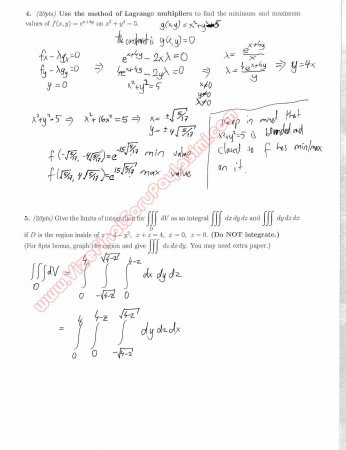 4. (25pts) Use the method of Lagrange multipliers to find the minimum and maximum
values of f(x, y) = e^{x+4y} on x² + y² = 5. g(x,y) = x²+y²-5
the constraint is g(x,y)=0
fx - λgx = 0 e^{x+4y} - 2xλ = 0 λ = e^{x+4y}/x
fy - λgy = 0 ⇒ 4e^{x+4y} - 2yλ = 0 ⇒ λ = e^{x+4y}/y ⇒ y = 4x
g = 0 x²+y²=5 x≠0 y≠0
x²+y²=5 ⇒ x²+16x²=5 ⇒ x = ±√5/17
y = ±4√5/17
keep in mind that
x²+y²=5 is bounded and
closed so f has min/max
on it.
f(-√5/17, -4√5/17) = e^{-15√5/17} min value
f(√5/17, 4√5/17) = e^{15√5/17} max value
5. (25pts) Give the limits of integration for ∭_D dV as an integral ∭ dx dy dz and ∭ dy dz dx
if D is the region inside of z = 4 - y², x + z = 4, x = 0, z = 0. (Do NOT integrate.)
(For 8pts bonus, graph the region and give ∭ dz dx dy. You may need extra paper.)
∭_D dV = ∫_0^4 ∫_{-√4-z}^{√4-z} ∫_0^{4-z} dx dy dz
= ∫_0^4 ∫_0^{4-x} ∫_{-√4-z}^{√4-z} dy dz dx